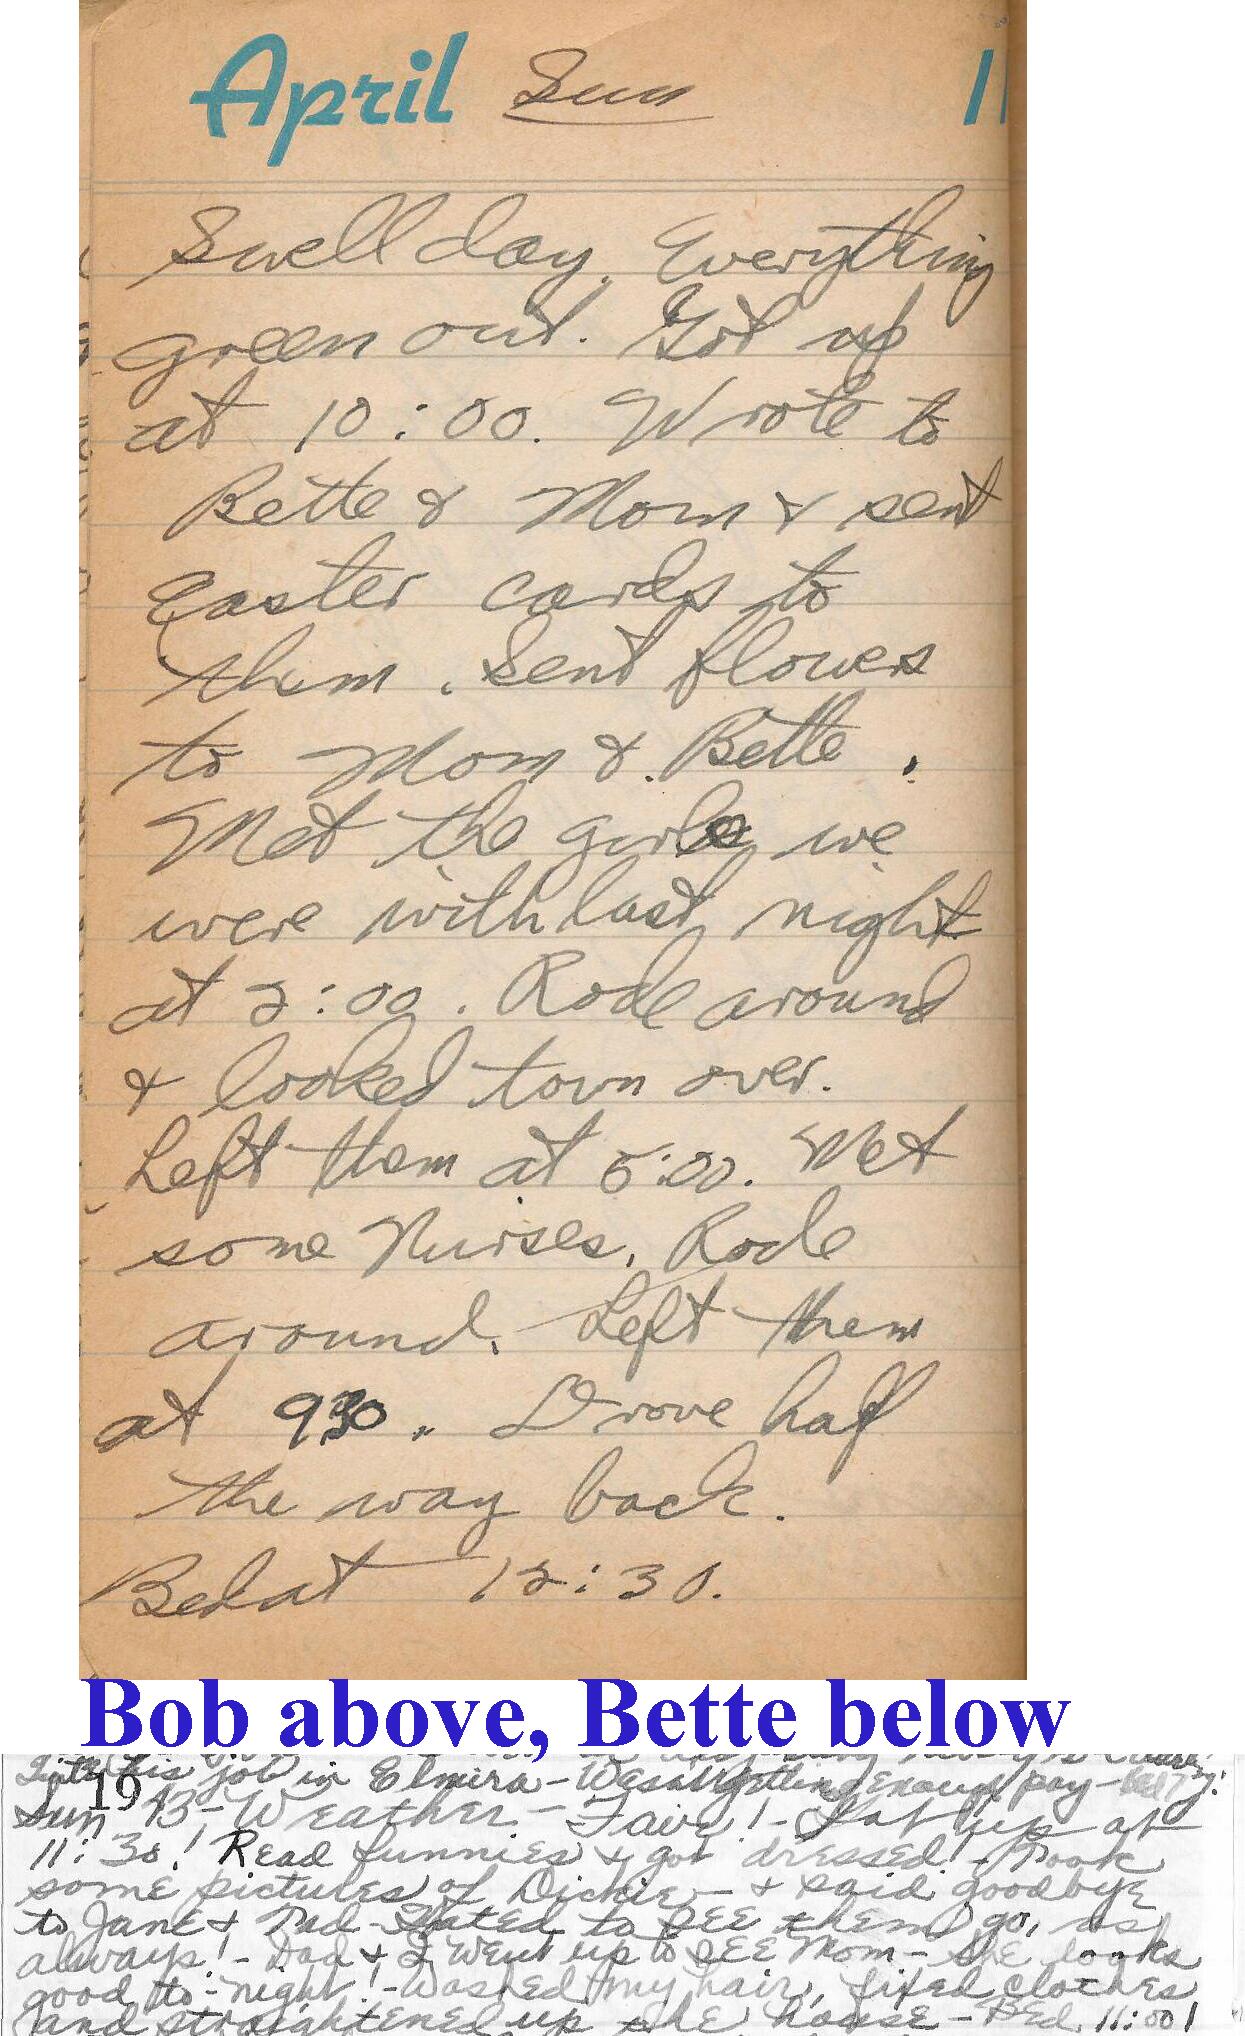 April Sun 11
Swell day. Everything
green out. Got up
at 10:00. Wrote to
Bette & Mom & sent
Easter cards to
them. Sent flowers
to Mom & Bette.
Met the girls we
were with last night
at 2:00. Rode around
& looked town over.
Left them at 5:00. Met
some Nurses. Rode
around. Left them
at 930. Drove half
the way back.
Bed at 12:30.
Bob above, Bette below
his job in Elmira - Wasn't getting enough pay -
Sun 1943 - Weather - Fair! - Got up at
11:30! Read funnies & got dressed! - Took
some pictures of Dickie - & said goodbye
to Jane & Tad - Hated to SEE them go, as
always! - Dad & I went up to SEE Mom - she looks
good to-night! - Washed my hair, fixed clothes
and straightened up the house - Bed 11:00!